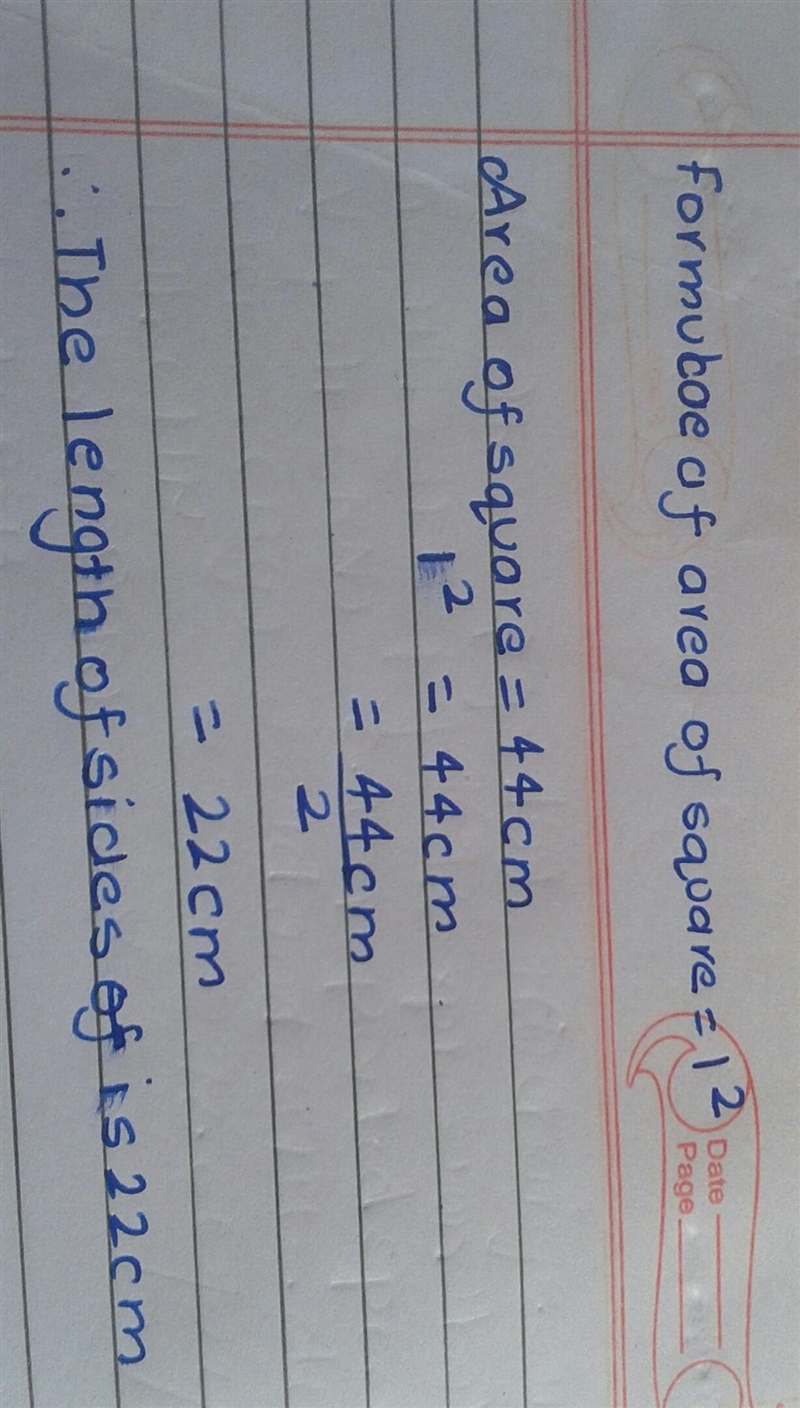 Date
Page
formuboe of area of square = l²
Area of square = 44cm
l² = 44cm
= 44cm
2
= 22cm
∴ The length of sides of is 22cm